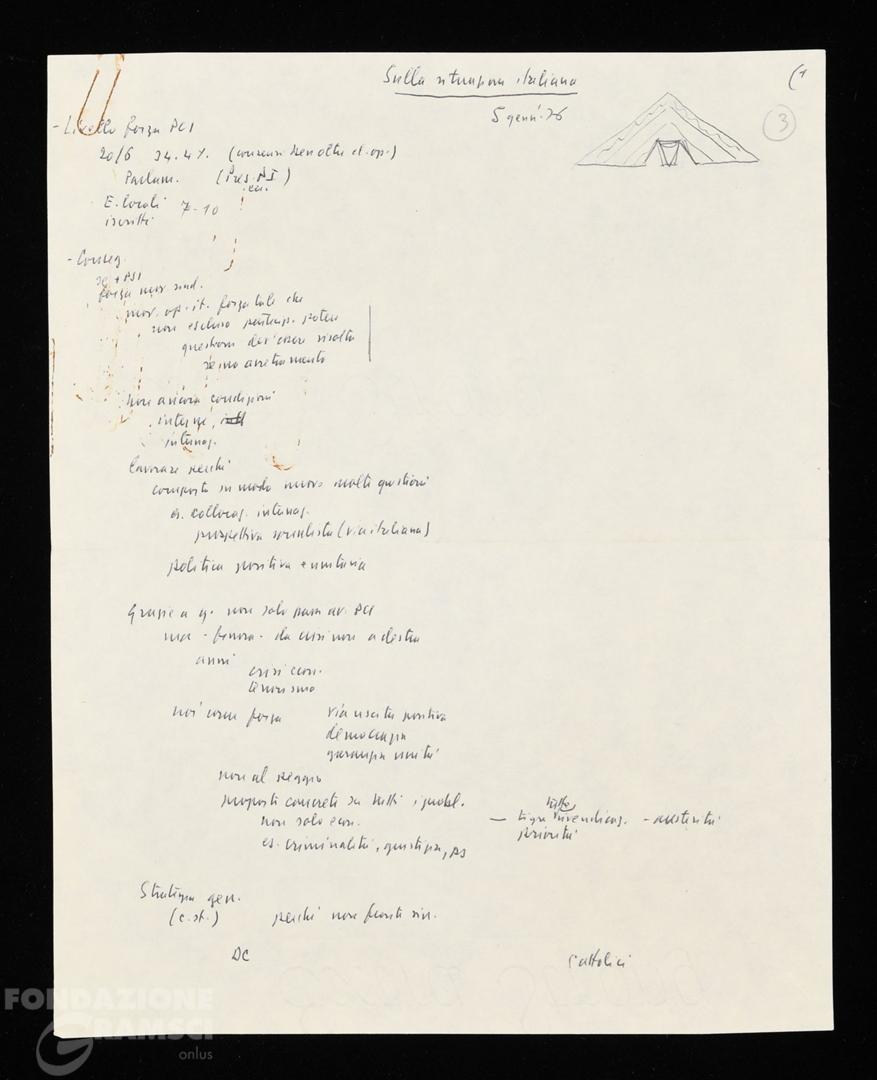 Sulla situazione italiana
(1
5 genn. 76
3
- Livello forza PCI
20/6 34.4% (
Parlam. (Pres.
E. locali 7-10
iscritti
- Conseg.
se + PSI
forza mov. sind.
mov. op. it. forza tale che
non escluso partecip. potere
questione dev'essere risolta
se no arretramento
non ancora condizioni
interne,
internaz.
lavorare perché
composte in modo nuovo molte questioni
es. collocaz. internaz.
prospettiva socialista (via italiana)
politica positiva e unitaria
Grazie a q. non solo PCI
ma - finora - da crisi non a destra
anni
crisi econ.
terrorismo
noi come forza via uscita positiva
democrazia
garanzia unità
non al peggio
proposte concrete su tutti i probl.
non solo econ.
es. criminalità, giustizia, PS
— tutte rivendicaz. - austerità
priorità
Strategia gen.
(c. st.) perché non fronte sin.
DC Cattolici
FONDAZIONE
GRAMSCI
onlus